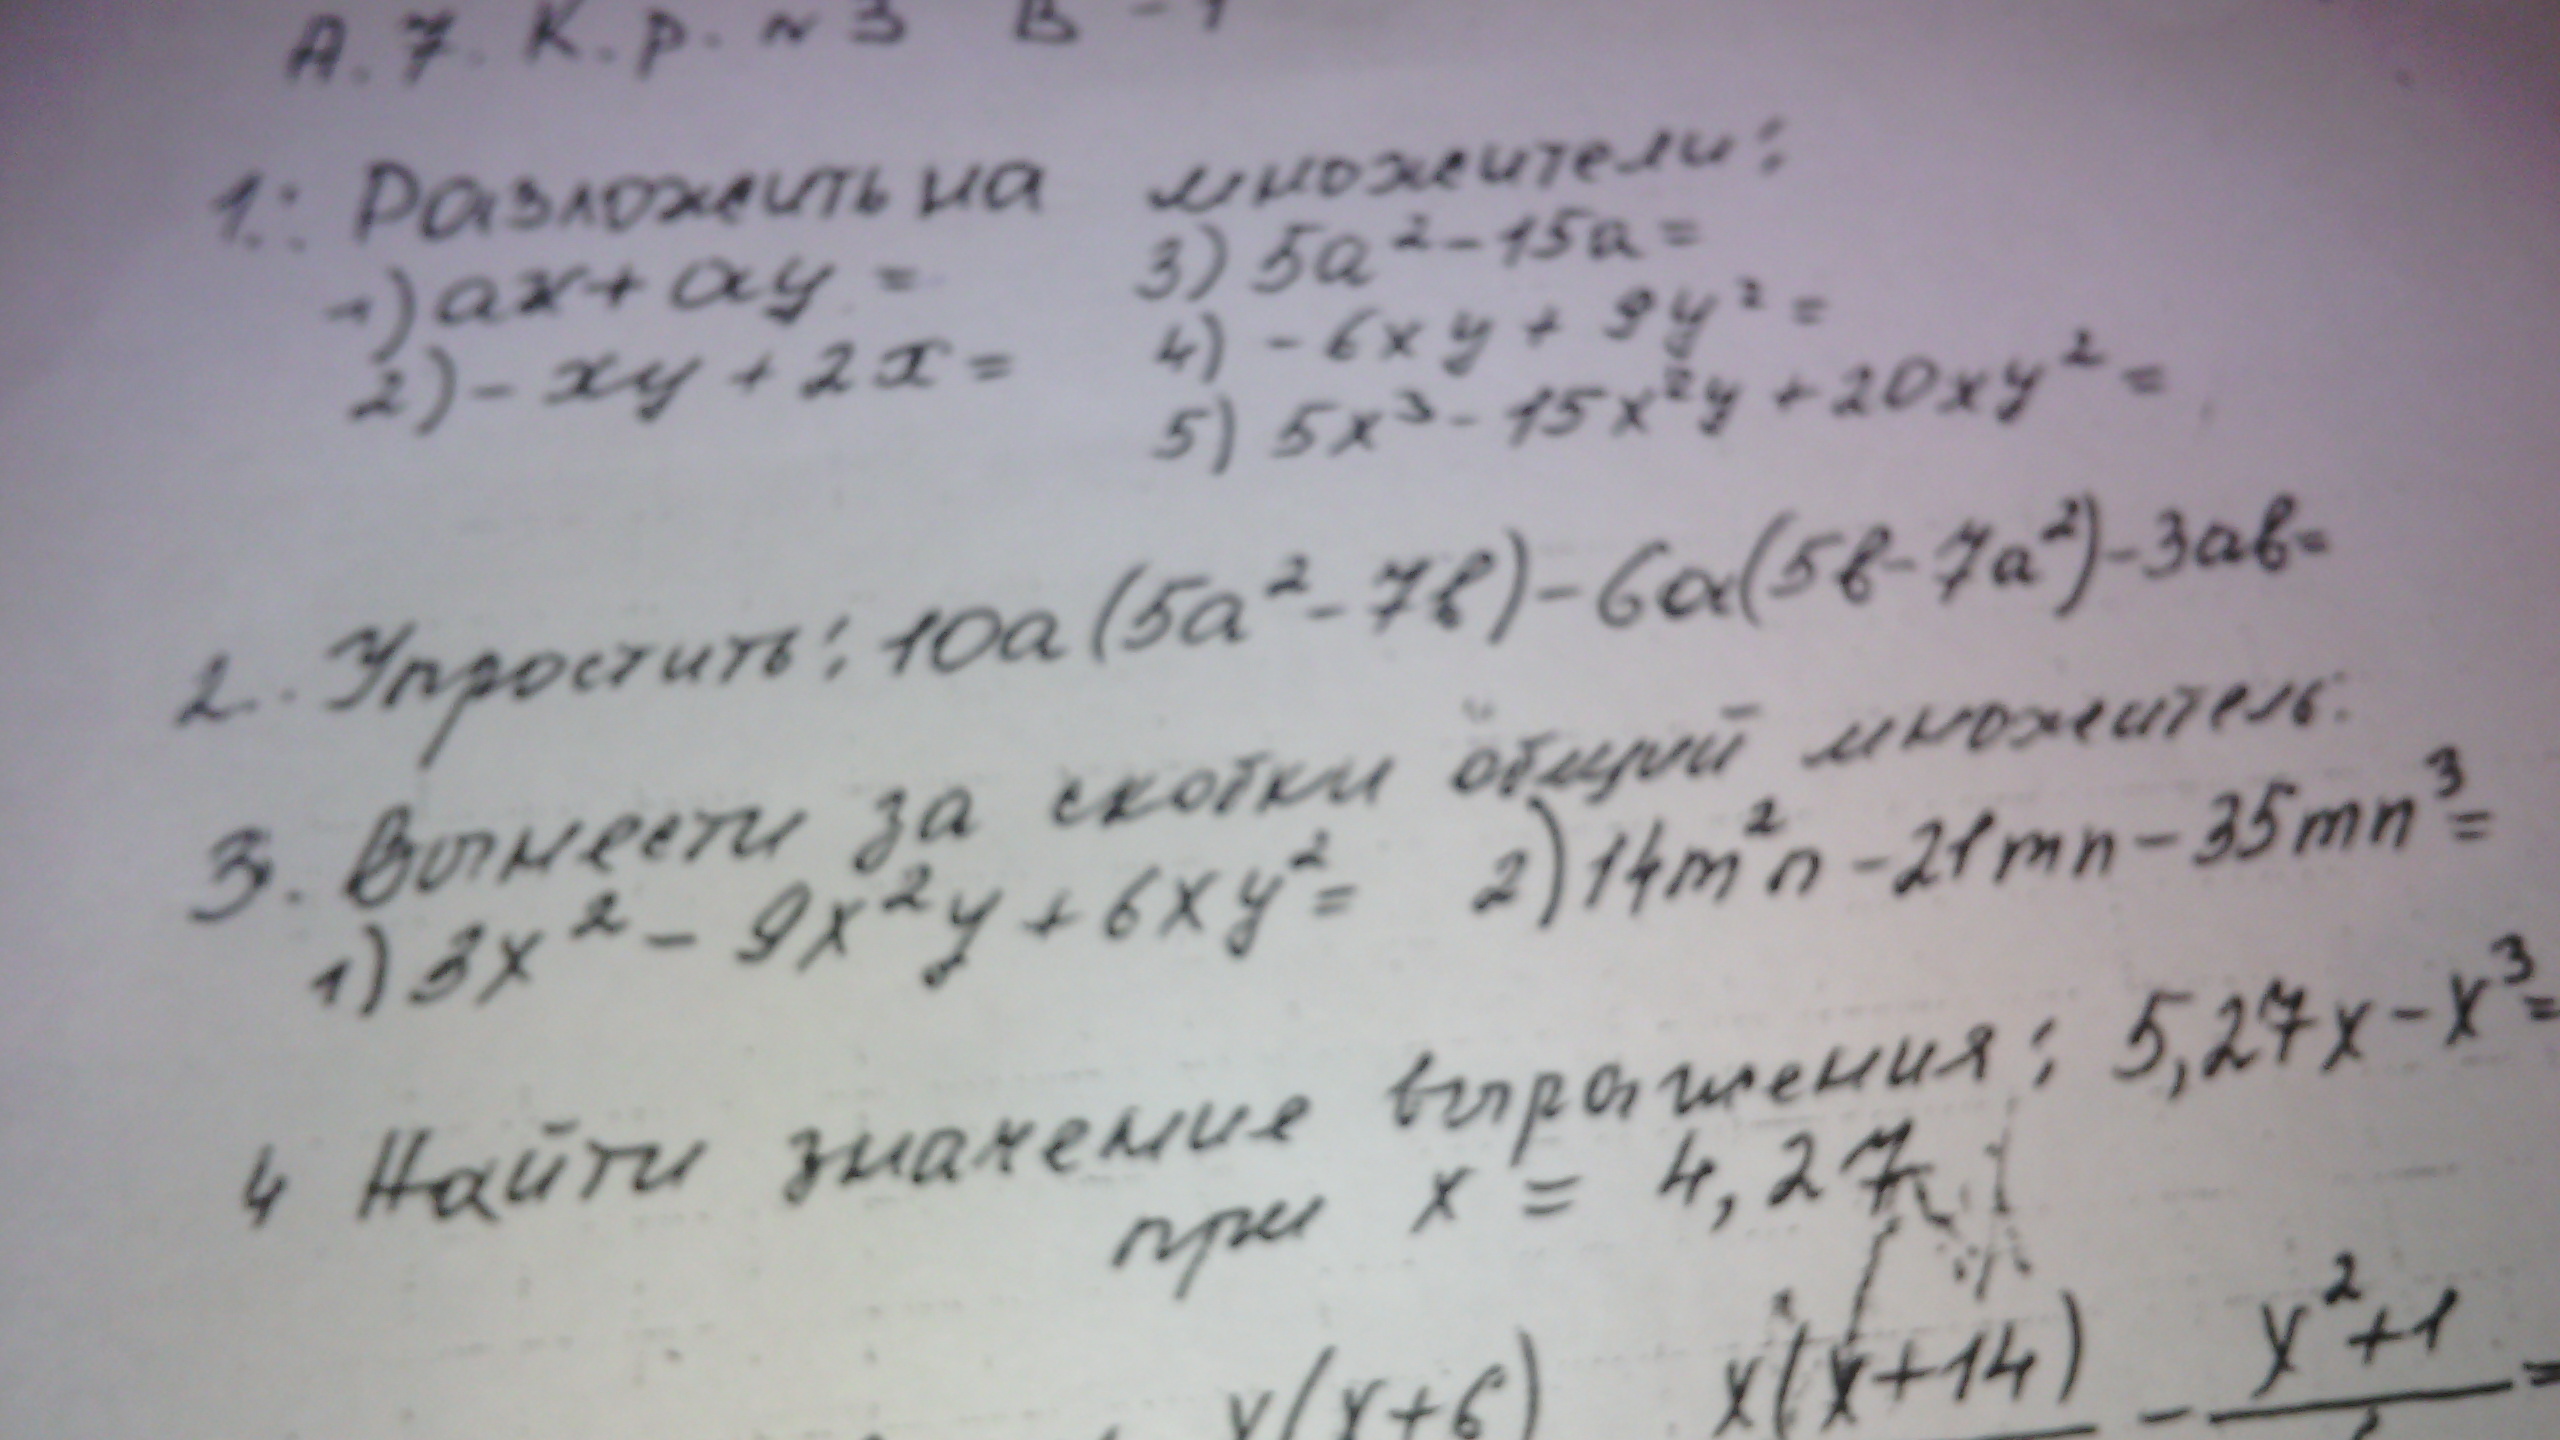 А. 7. К. р. № 3 В - 1
1. Разложить на множители:
1) ax + ay = 3) 5a² - 15a =
2) - xy + 2x = 4) - 6xy + 9y² =
5) 5x³ - 15x²y + 20xy² =
2. Упростить: 10a (5a² - 7b) - 6a (5b - 7a²) - 3ab =
3. Вынести за скобки общий множитель:
1) 3x² - 9x²y + 6xy² = 2) 14m²n - 21mn - 35mn³ =
4 Найти значение выражения: 5,27x - x³ =
при x = 4,27
x(x+6) x(x+14) - x²+1 =